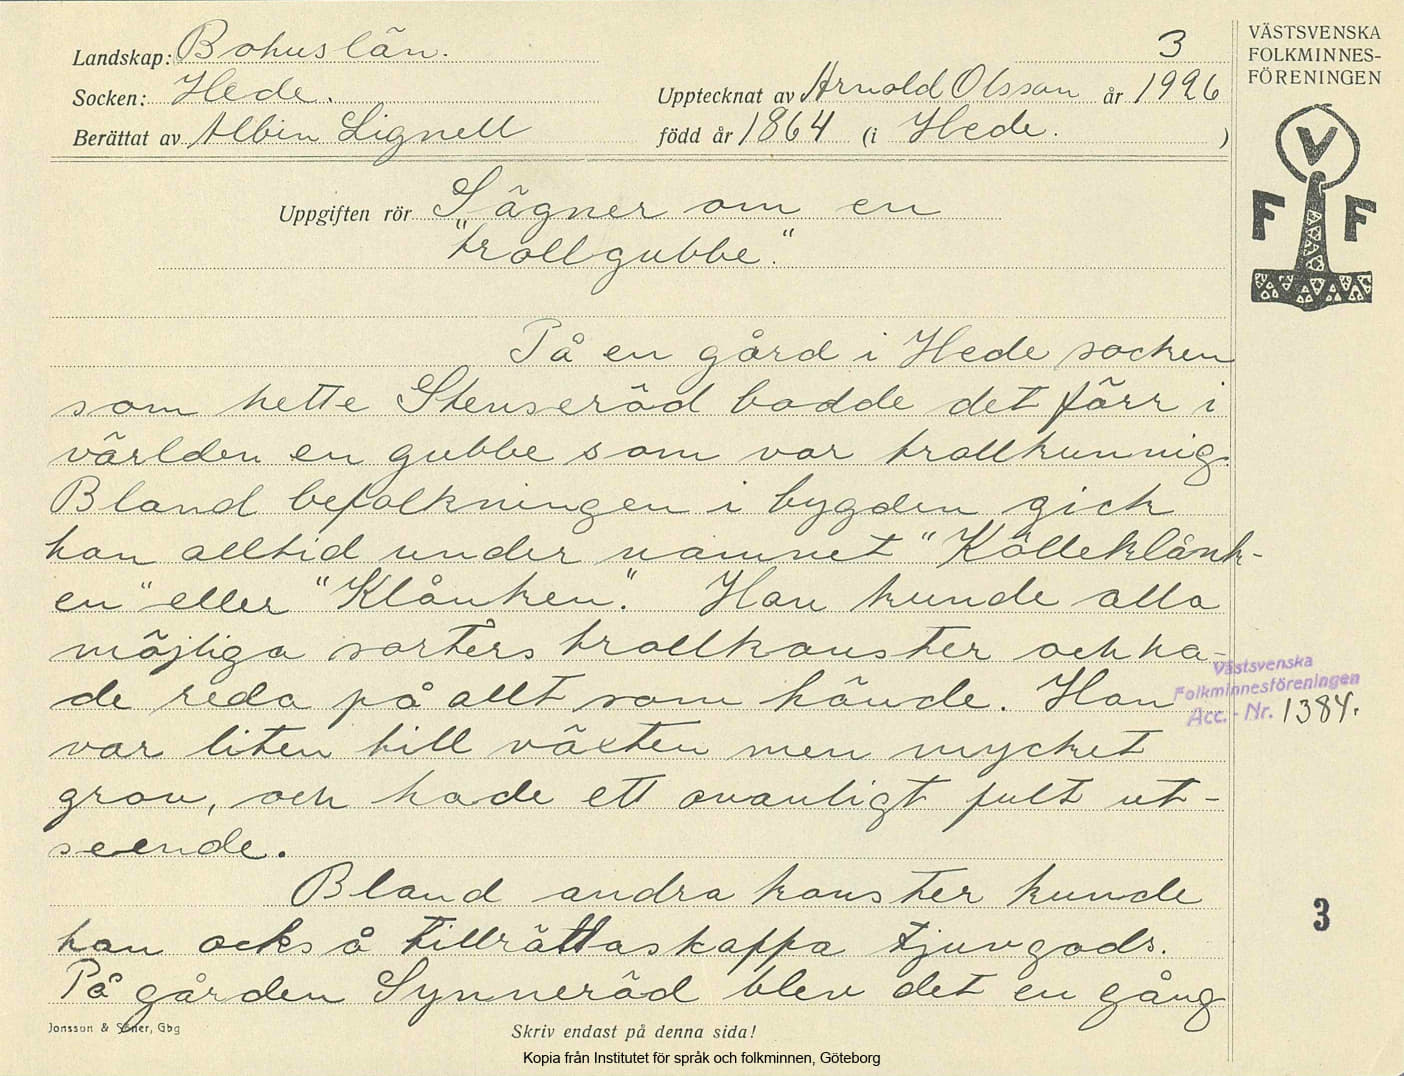 Landskap: Bohuslän.
3
Socken: Hede.
Upptecknat av Arnold Olsson år 1926
Berättat av Albin Lignell
född år 1864 (i Hede. )
VÄSTSVENSKA
FOLKMINNES-
FÖRENINGEN
V
F F
Uppgiften rör Sägner om en
"trollgubbe."
På en gård i Hede socken
som hette Stenseröd bodde det förr i
världen en gubbe som var trollkunnig.
Bland befolkningen i bygden gick
han alltid under namnet "Kölleklånk-
en" eller "Klånken." Han kunde alla
möjliga sorters trollkonster och ha-
de reda på allt som hände. Han
var liten till växten men mycket
grov, och hade ett ovanligt fult ut-
seende.
Västsvenska
Folkminnesföreningen
Acc. - Nr. 1384.
Bland andra konster kunde
han också tillrättaskaffa tjuvgods.
På gården Synneröd blev det en gång
3
Jonsson & Söner, Gbg
Skriv endast på denna sida!
Kopia från Institutet för språk och folkminnen, Göteborg